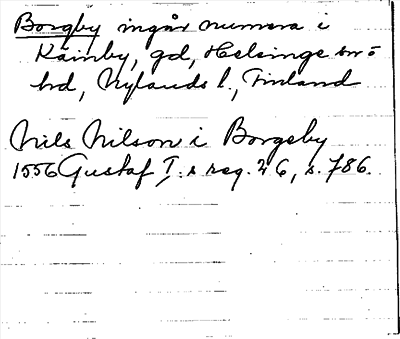 Borgby ingår numera i
Kainby, gd, Helsinge sn o
hd, Nylands l., Finland
Nils Nilson i Borgeby
1556 Gustaf I. s reg. 26, s. 786.